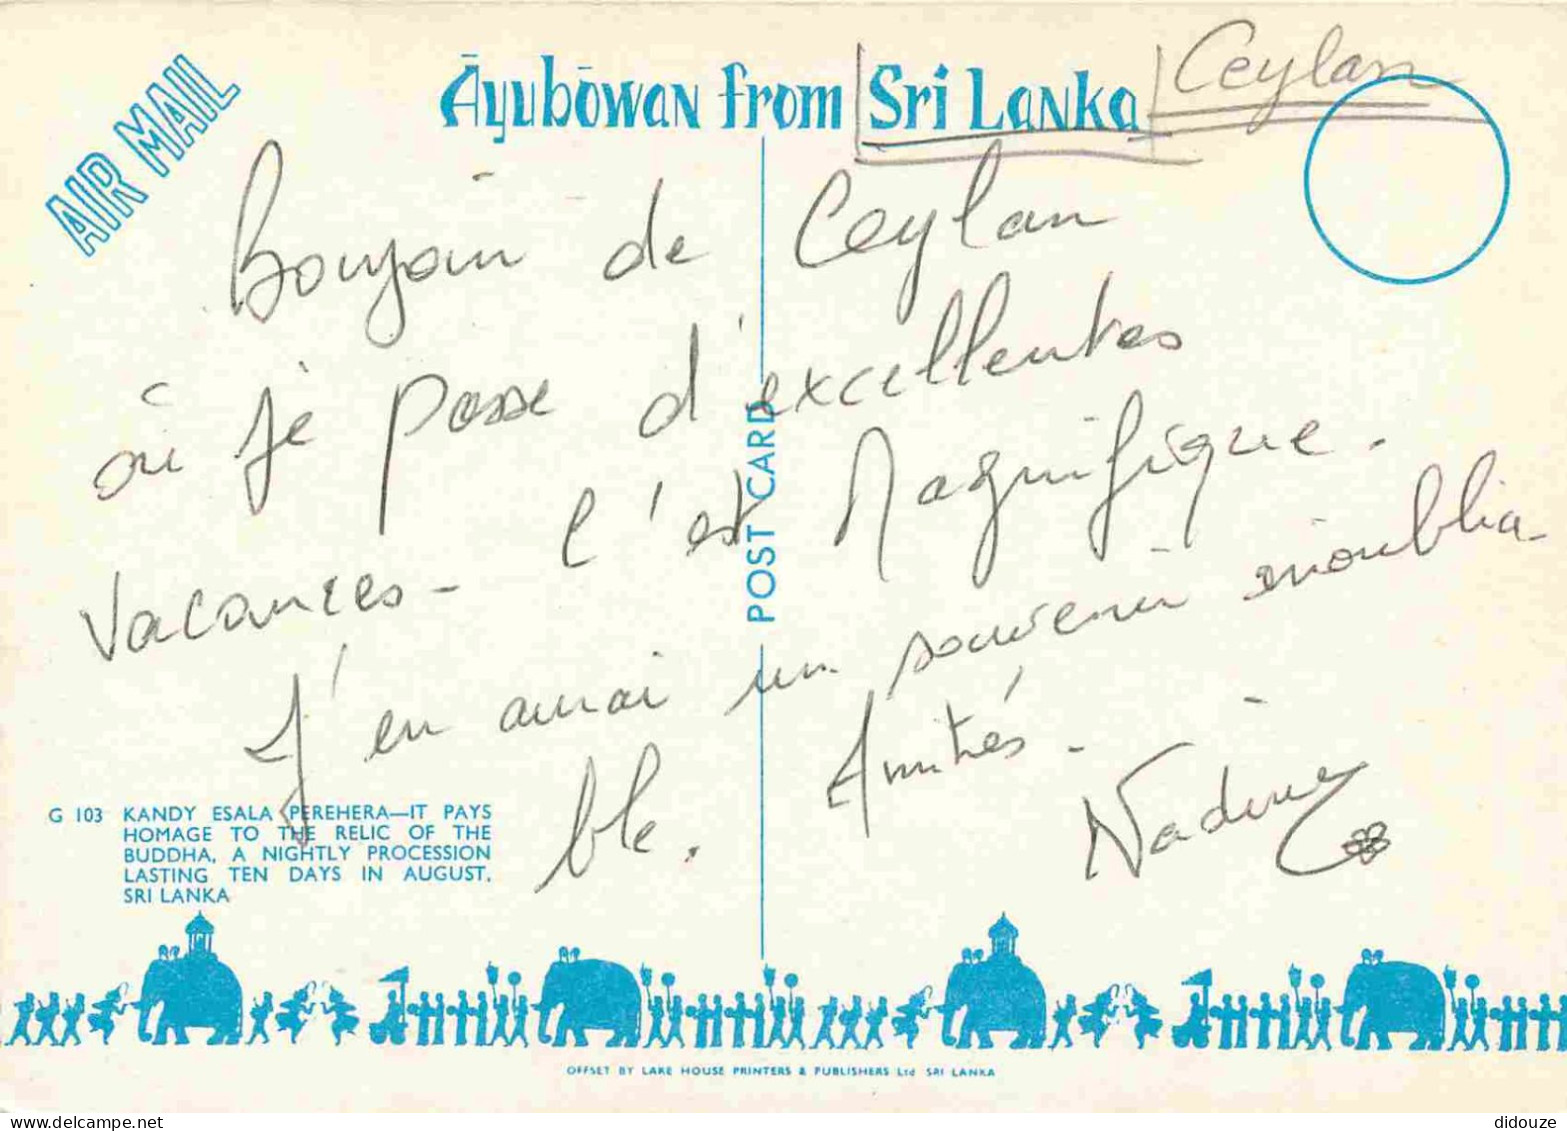 AIR MAIL
Āyubōwan from Sri Lanka Ceylan
Bonjour de Ceylan
où je passe d'excellentes
vacances - c'est Magnifique.
J'en aurai un souvenir inoublia-
ble. Amitiés -
Nadine
POST CARD
G 103 KANDY ESALA PEREHERA—IT PAYS
HOMAGE TO THE RELIC OF THE
BUDDHA, A NIGHTLY PROCESSION
LASTING TEN DAYS IN AUGUST,
SRI LANKA
OFFSET BY LAKE HOUSE PRINTERS & PUBLISHERS Ltd SRI LANKA
didouze